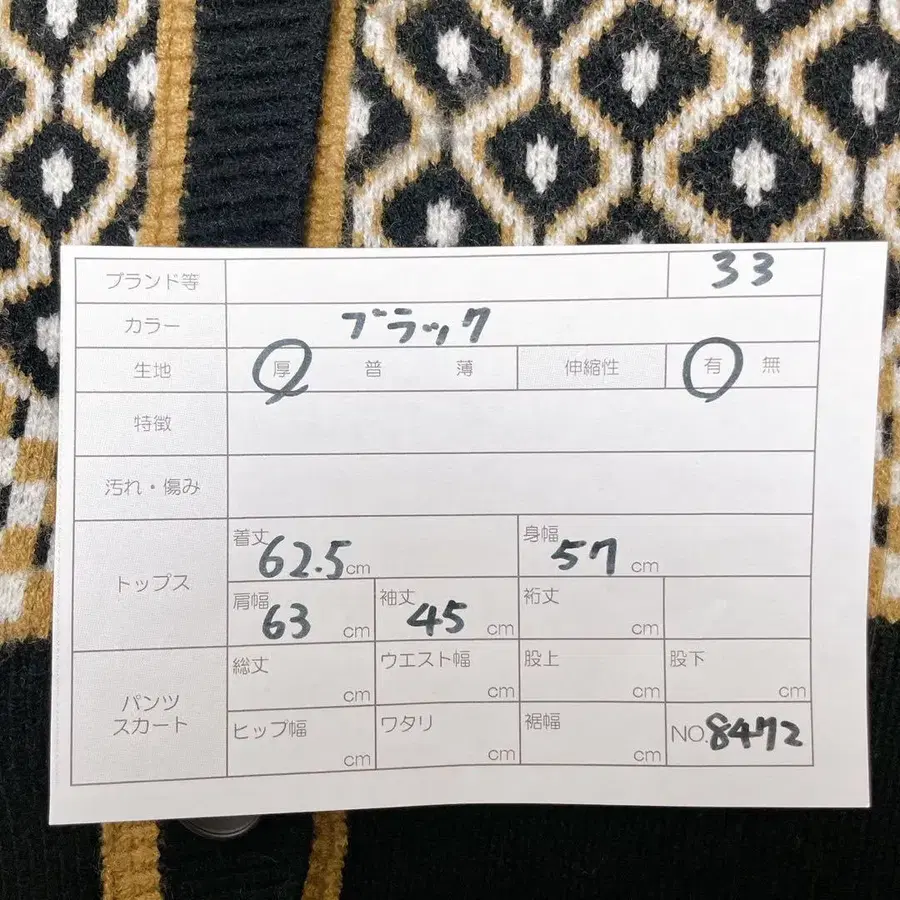 ブランド等 33
カラー ブラック
生地 厚 普 薄 伸縮性 有 無
特徴
汚れ・傷み
トップス 着丈 62.5cm 身幅 57cm
肩幅 63cm 袖丈 45cm 裄丈 cm
パンツ スカート 総丈 cm ウエスト幅 cm 股上 cm 股下 cm
ヒップ幅 cm ワタリ cm 裾幅 cm NO.8472